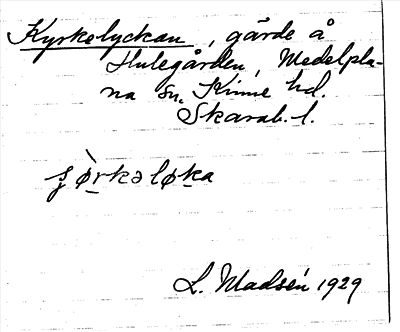 Kyrkelyckan, gärde å
Hulegården, Medelpla-
na sn. Kinne hd.
Skarab. l.
ʒø̀rkəløka
L. Madsén 1929